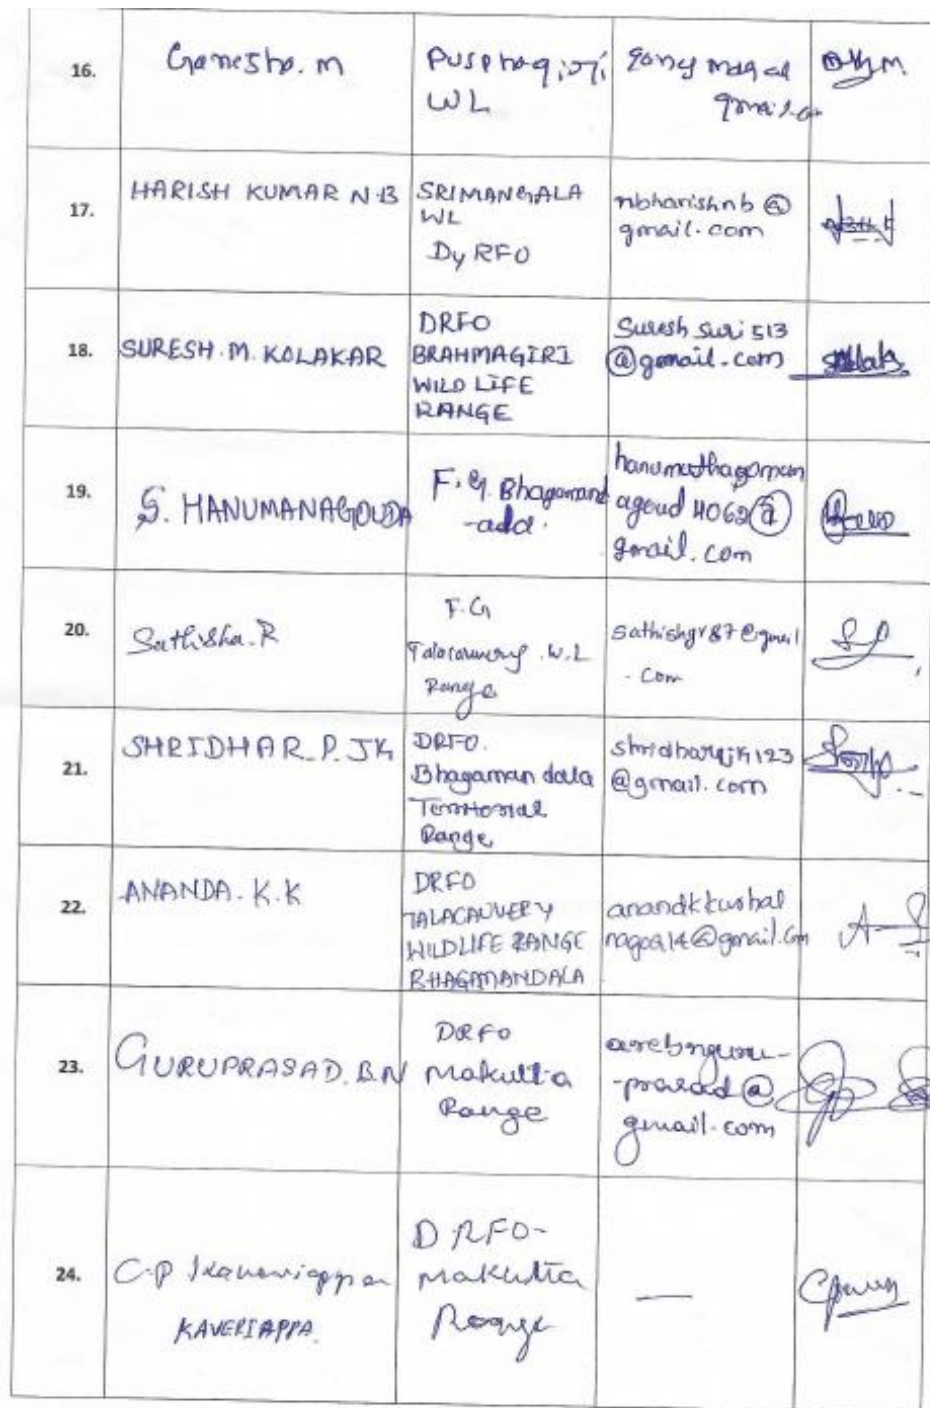 16. Ganesha. M Pusphagiri
WL
17. HARISH KUMAR N B SRIMANGALA
WL
Dy RFO nbharishnb @
gmail.com
18. SURESH. M. KOLAKAR DRFO
BRAHMAGIRI
WILD LIFE
RANGE Suresh suri 513
@gmail.com
19. S. HANUMANAGOUDA F.G. Bhagamand
-add.
agoud 4062@
gmail.com
20. Sathisha.R F.G
Talacauvery .W.L
Range sathishgr87@gmail
.com
21. SHRIDHAR.P.JK DRFO.
Bhagaman dala
Territorial
Range
@gmail.com
22. ANANDA. K.K DRFO
TALACAUVERY
WILDLIFE RANGE
BHAGAMANDALA anandkkushal
23. GURUPRASAD.B.N DRFO
Makutta
Range arebnguru-
-prasad @
gmail.com
24. C.P Kaveriappa
KAVERIAPPA. DRFO-
Makutta
Range —